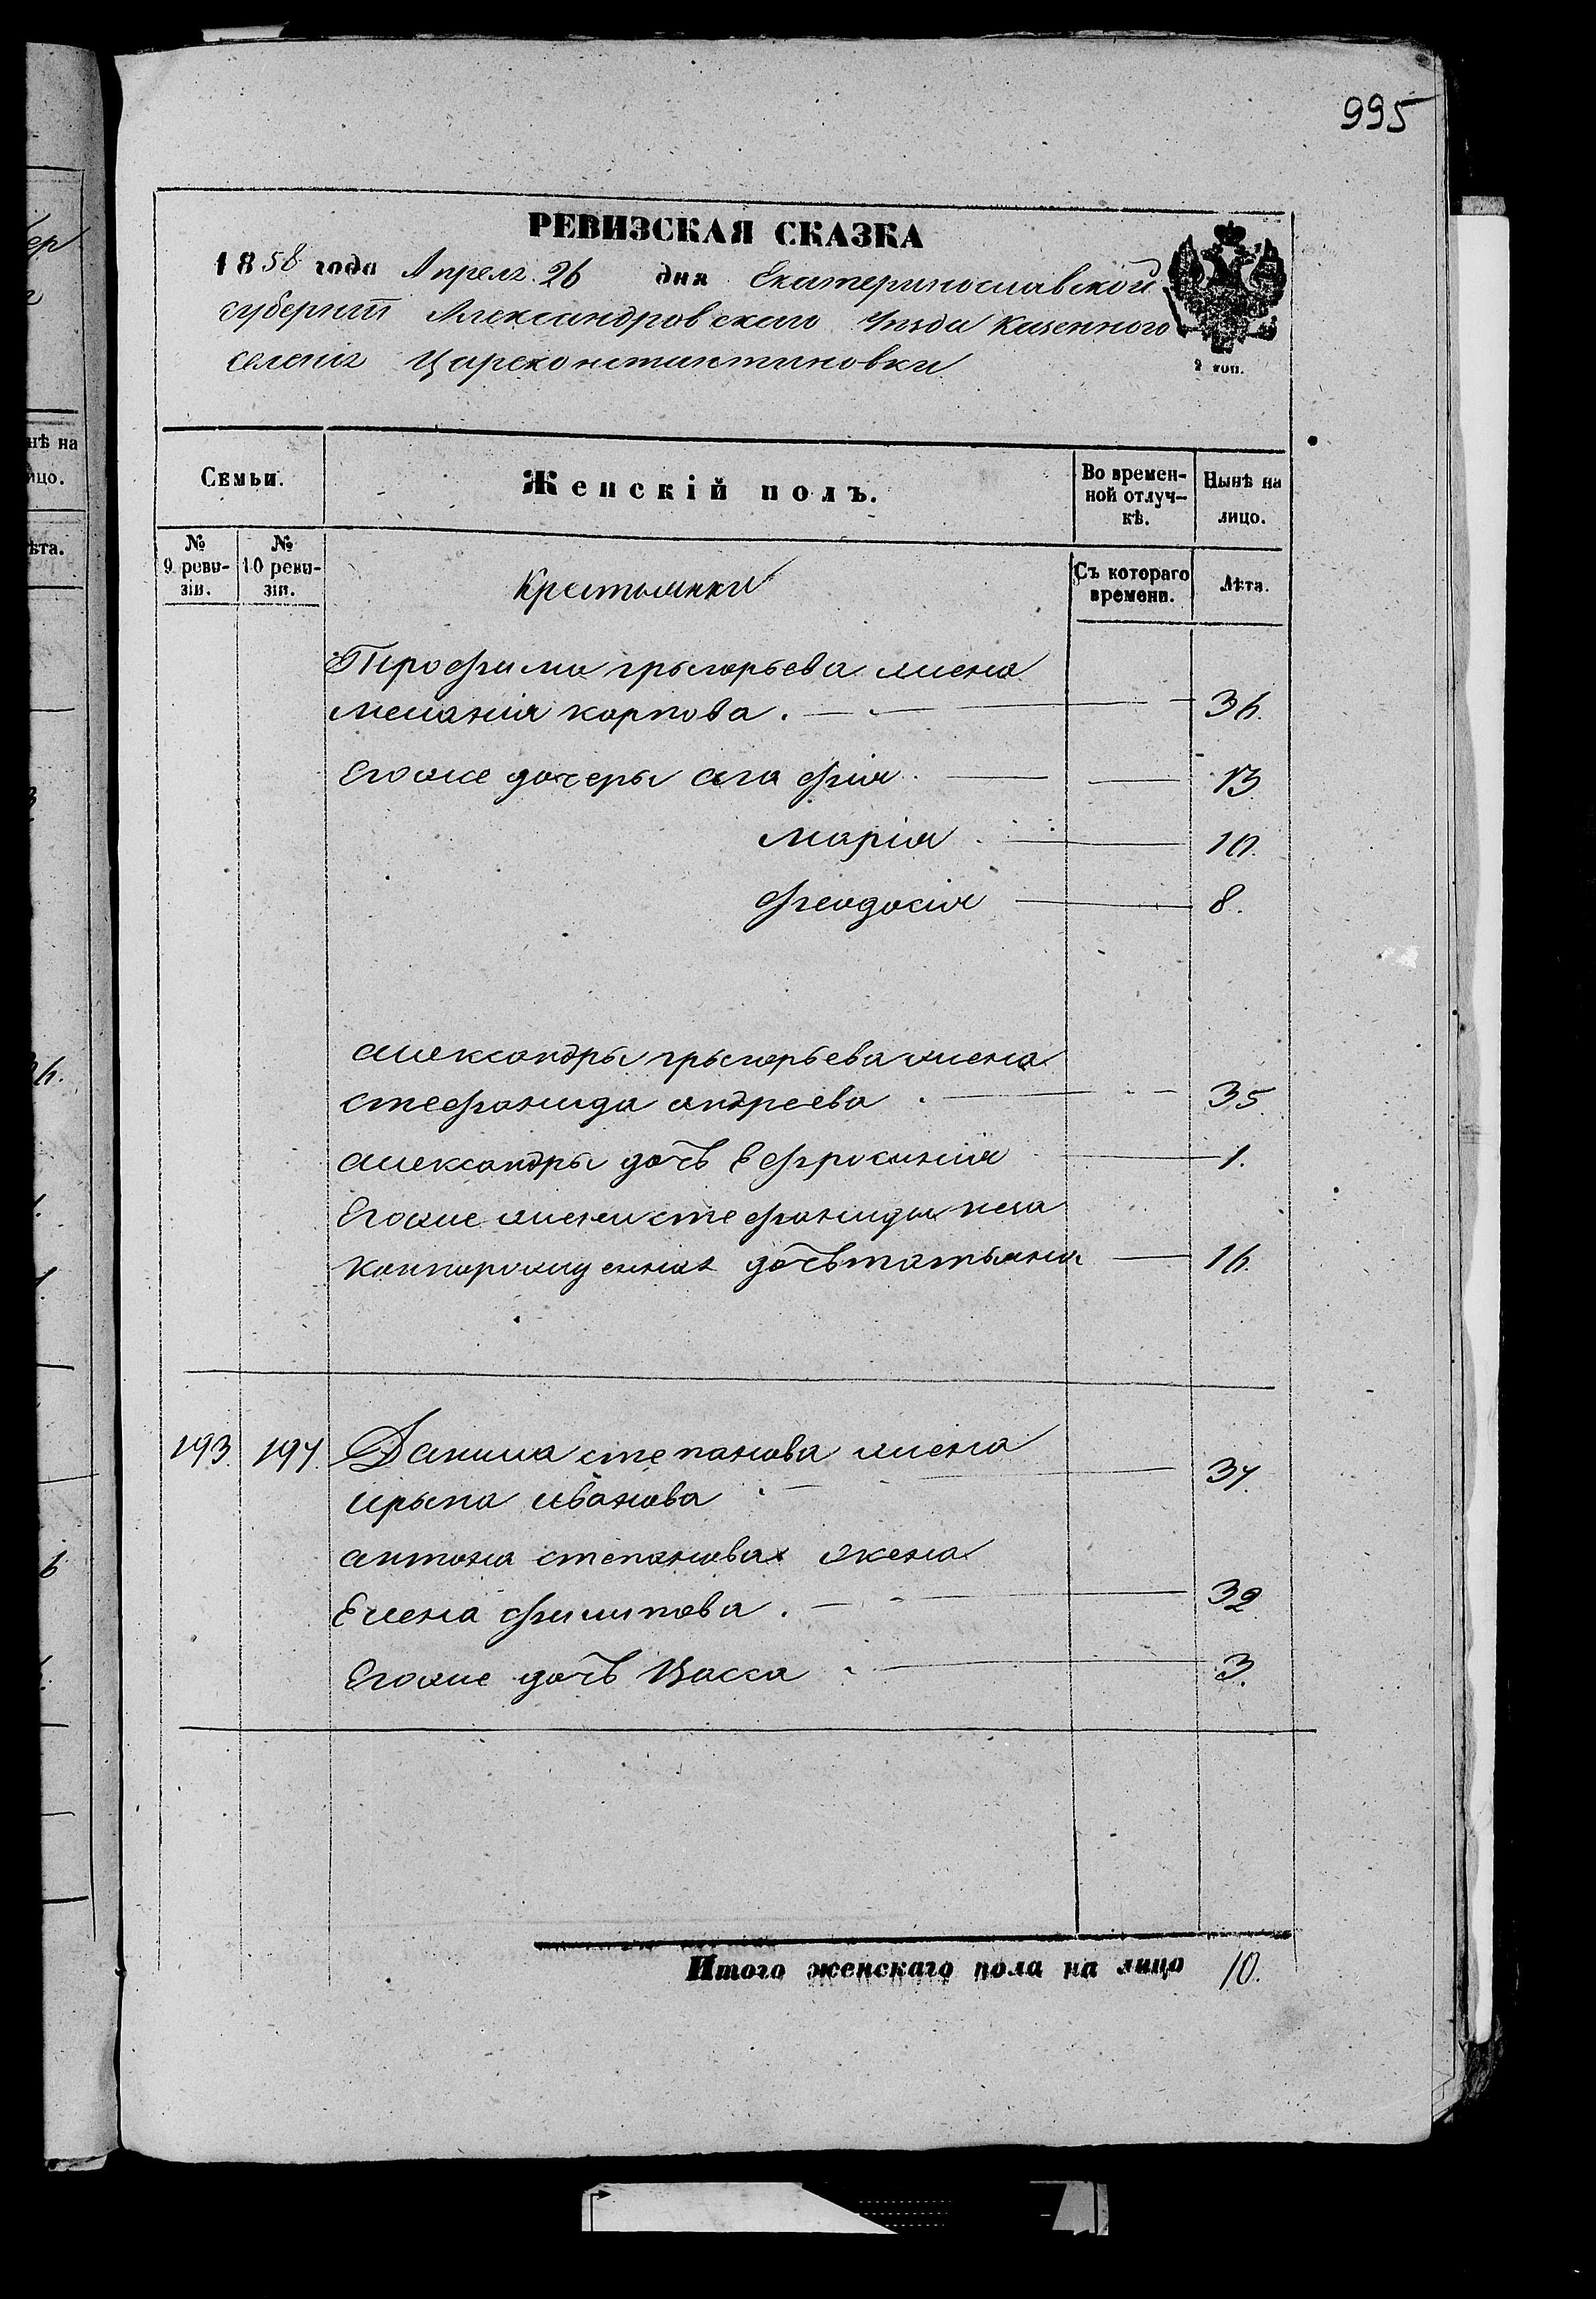 995
РЕВИЗСКАЯ СКАЗКА
1858 года Апреля 26 дня Екатеринославской
губерніи Александровскаго Уѣзда Казенного
селенія Цареконстантиновки
2 коп.
Семьи. Женскій полъ. Во времен-ной отлуч-кѣ. Нынѣ на лицо.
№ 9 реви-зіи. № 10 реви-зіи. Крестьянки Съ котораго времени. Лѣта.
Трофима грыгорьева жена
меланія карпова. 36.
Егоже дочеры агафія. 13
марія 10.
феодосія 8.
александры грыгорьева жена
стефанида андреева 35.
александры дочь ефросинія 1.
Егоже жены стефаниды
дочь татьяна 16.
193. 197. Данила степанова жена
ирына иванова 37.
антона степанова жена
Елена филипова. 32
Егоже дочь Васса 3.
Итого женскаго пола на лицо 10.
нѣ на
ицо.
ѣта.